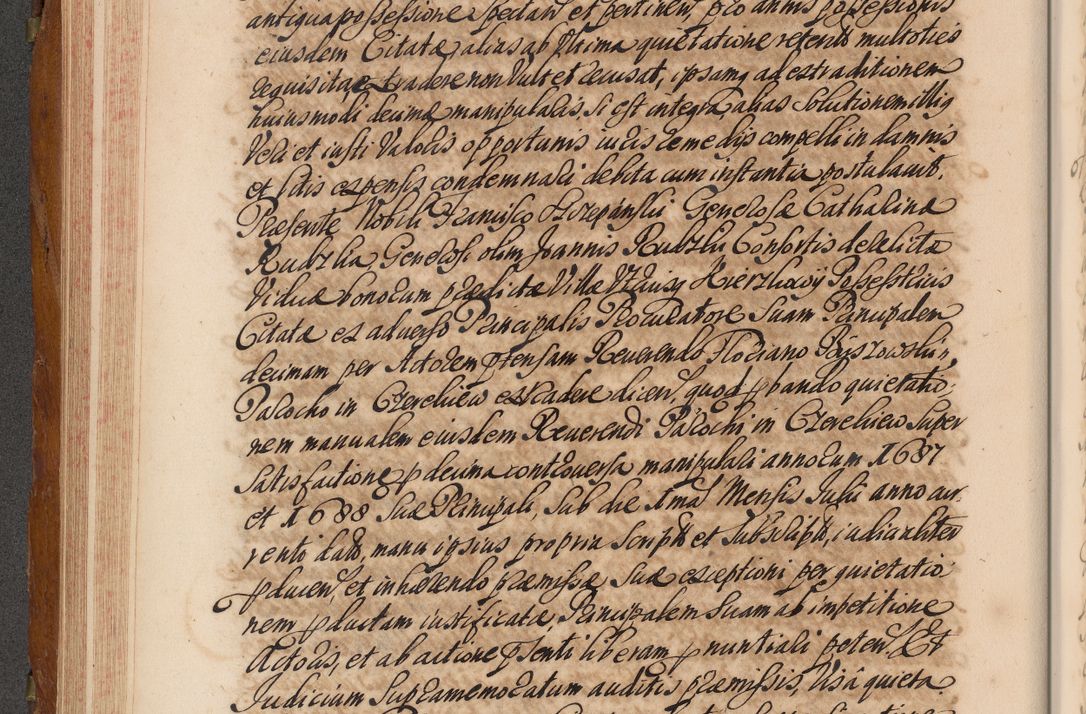 antiqua possessione spectan et pertinen pro annis possessionis
eiusdem Citatæ, alias ab ultima quietatione referito multoties
requisita, extradere non vult et recusat, ipsamq ad extraditionem
huiusmodi decimæ manipularis, si est integra, alias solutionem illig
Veri et iusti Valoris opportunis iuris remedijs compelli in damnis
et litis expensis condemnari debita cum instantia postulavit.
Præsente Nobili Francisco Szczepański Generosæ Catharinæ
Rudzka Generosi olim Joannis Rudzki Consortis derelicta
Viduæ bonorum prædictæ Villæ Utriusq Kierzkowy Possessricis
Citatæ ex adverso Principalis Procuratore Suam Principalem
decimam per Actorem prtensam Reverendo Floriano Pajszowski
Parocho in Czerchiew extradere dicen, quod pbando quietatio
nem manualem eiusdem Reverendi Parochi in Czerchiew super
satisfactione p decima controversa manipulari annorum 1687
et 1688 Suæ Principali, sub die 1ma Mensis Julii anno cur
renti dato, manu ipsius propria script et subscript, iudicialiter
pducen, et inhærendo præmissæ Suæ exceptioni per quietatio
nem pductam iustificatæ, Principalem suam ab impetitione
Actoris, et ab actione psenti liberam p nuntiari peten. Et
Judicium Supramemoratum auditis præmissis, visâ quieta